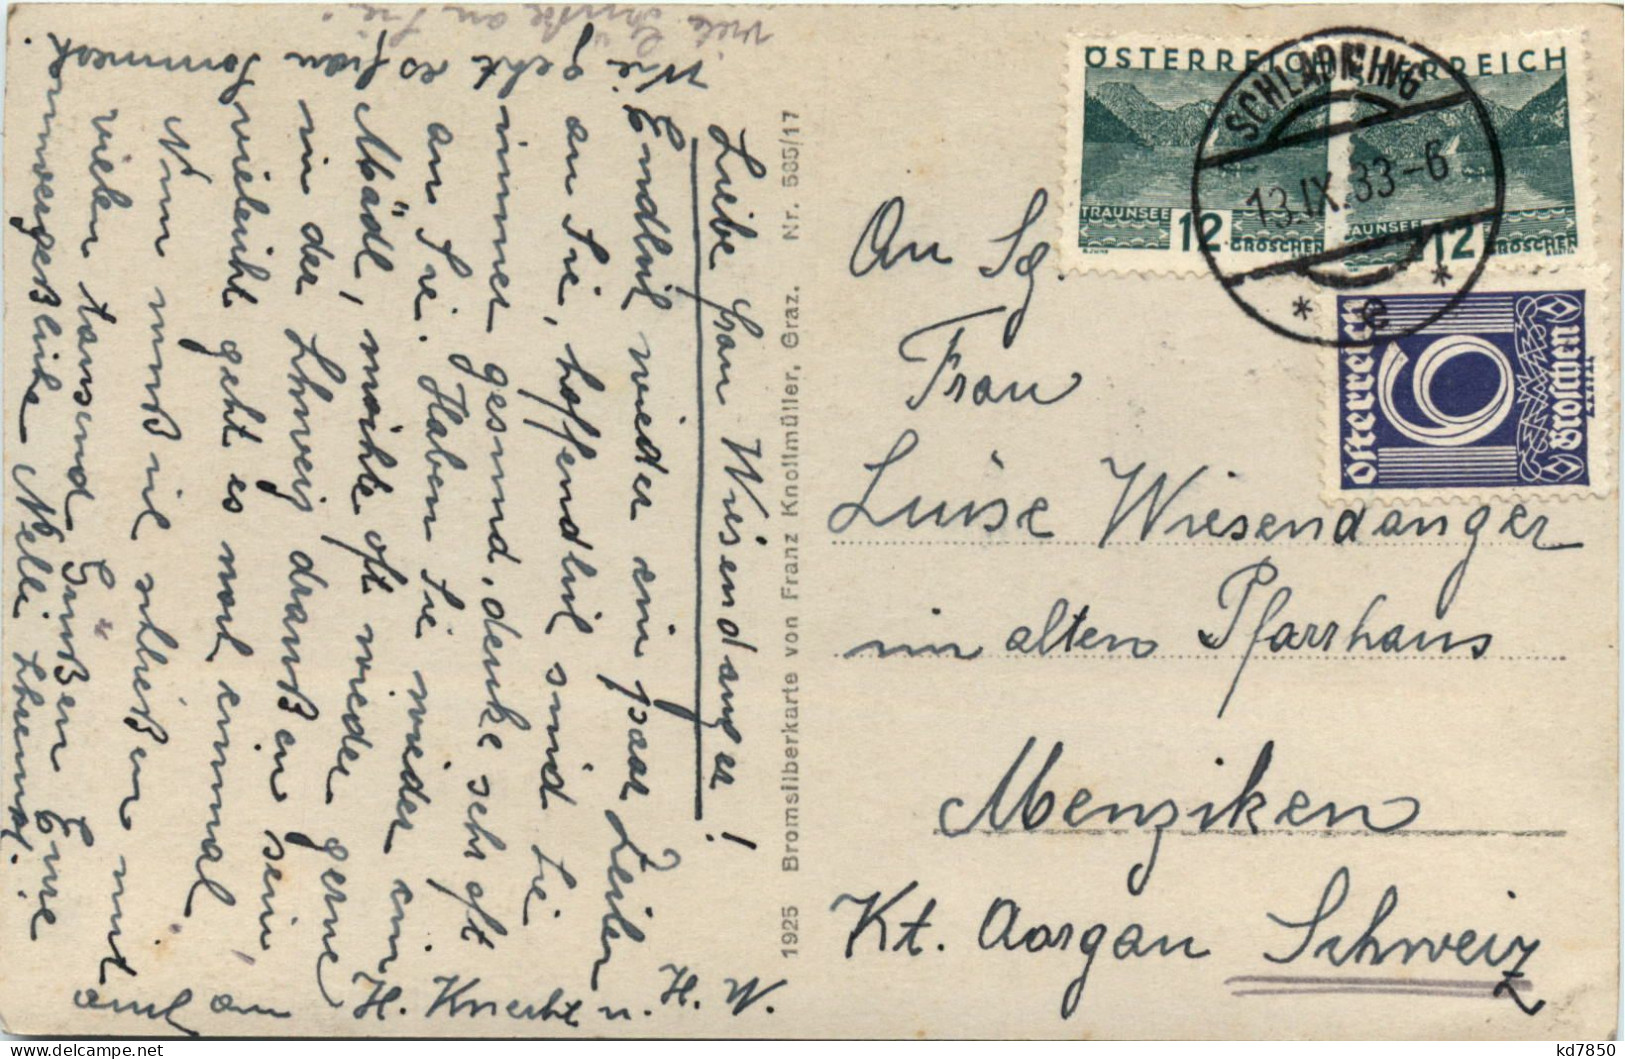 Liebe Frau Wiesendanger!
Endlich wieder ein paar Zeilen
an Sie, hoffendlich sind Sie
immer gesund, denke sehr oft
an Sie. Haben Sie wieder ein
Mädl, möchte oft wieder gerne
in der Schweiz draußen sein,
vieleicht geht es noch einmal,
Nun muß ich schließen mit
vielen tausend Grüßen Eure
unvergeßliche Nelli
Wie geht es Frau
auch an H. Knecht u. H. W.
viele Grüße an Sie
1925 Bromsilberkarte von Franz Knollmüller, Graz. Nr. 565/17
ÖSTERREICH
TRAUNSEE
12 GROSCHEN
ÖSTERREICH
TRAUNSEE
12 GROSCHEN
SCHLADMING
13.IX.33-6
* e *
Österreich
9
Groschen
An Sg.
Frau
Luise Wiesendanger
im alten Pfarrhaus
Menziken
Kt. Aargau Schweiz
kd7850